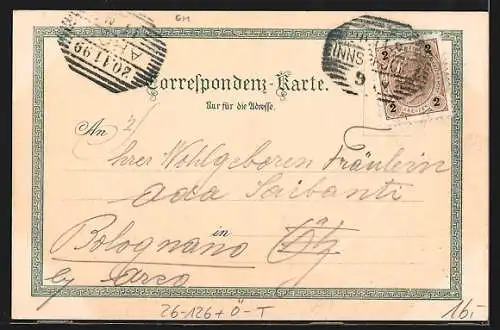 GM
20.11.99
AR
INNS
6
2 2
2 2
Correspondenz-Karte.
Nur für die Adresse.
An
Ihrer Wohlgeboren Fräulein
Ada Saibanti
in
Bolognano
bei Arco
26-126+Ö-T
16,-